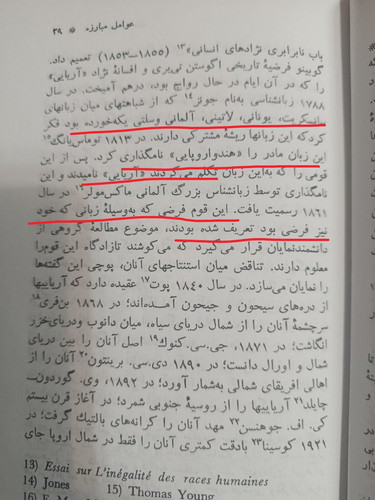 عوامل مبارزه * ۳۹
باب نابرابری نژادهای انسانی»۱۳ (۱۸۵۵–۱۸۵۳) تعمیم داد.
گوبینو فرضیهٔ تاریخی اگوستن تی‌یری و افسانهٔ نژاد «آریایی»
را که در آن ایام در حال رواج بود، درهم آمیخت. در سال
۱۷۸۸ زبانشناسی به‌نام جونز۱۴ که از شباهتهای میان زبانهای
سانسکریت، یونانی، لاتینی، آلمانی و سلتی یکه‌خورده بود فکر
کرد که این زبانها ریشهٔ مشترکی دارند. در ۱۸۱۳ توماس‌یانگ۱۵
این زبان مادر را «هندواروپایی» نامگذاری کرد. پس از این
قومی را که به‌این زبان تکلم می‌کردند «آریایی» نامیدند و این
نامگذاری توسط زبانشناس بزرگ آلمانی ماکس‌مولر۱۶ در سال
۱۸۶۱ رسمیت یافت. این قوم فرضی که به‌وسیلهٔ زبانی که خود
نیز فرضی بود تعریف شده بودند، موضوع مطالعهٔ گروهی از
دانشمندنمایان قرار می‌گیرد که می‌کوشند تازادگاه این قوم‌را
معلوم دارند. تناقض میان استنتاجهای آنان، پوچی این گفته‌ها
را نمایان می‌سازد. در سال ۱۸۴۰ پوت۱۷ عقیده دارد که آریاییها
از دره‌های سیحون و جیحون آمده‌اند؛ در ۱۸۶۸ بن‌فری۱۸
سرچشمهٔ آنان را از شمال دریای سیاه، میان دانوب و دریای‌خزر
انگاشت؛ در ۱۸۷۱، جی.سی.کنوک۱۹ اصل آنان را بین دریای
شمال و اورال دانست؛ در ۱۸۹۰ دی.سی. برینتون۲۰ آنان را از
اهالی افریقای شمالی به‌شمار آورد؛ در ۱۸۹۲، وی. گوردون-
چایلد۲۱ آریاییها را از روسیهٔ جنوبی شمرد؛ در آغاز قرن بیستم
کی. اف. جوهنسن۲۲ مهد آنان را کرانه‌های بالتیک گرفت؛ در
۱۹۲۱ کوسینا۲۳ بادقت کمتری آنان را فقط در شمال اروپا جای
13) Essai sur L'inégalité des races humaines
14) Jones 15) Thomas Young